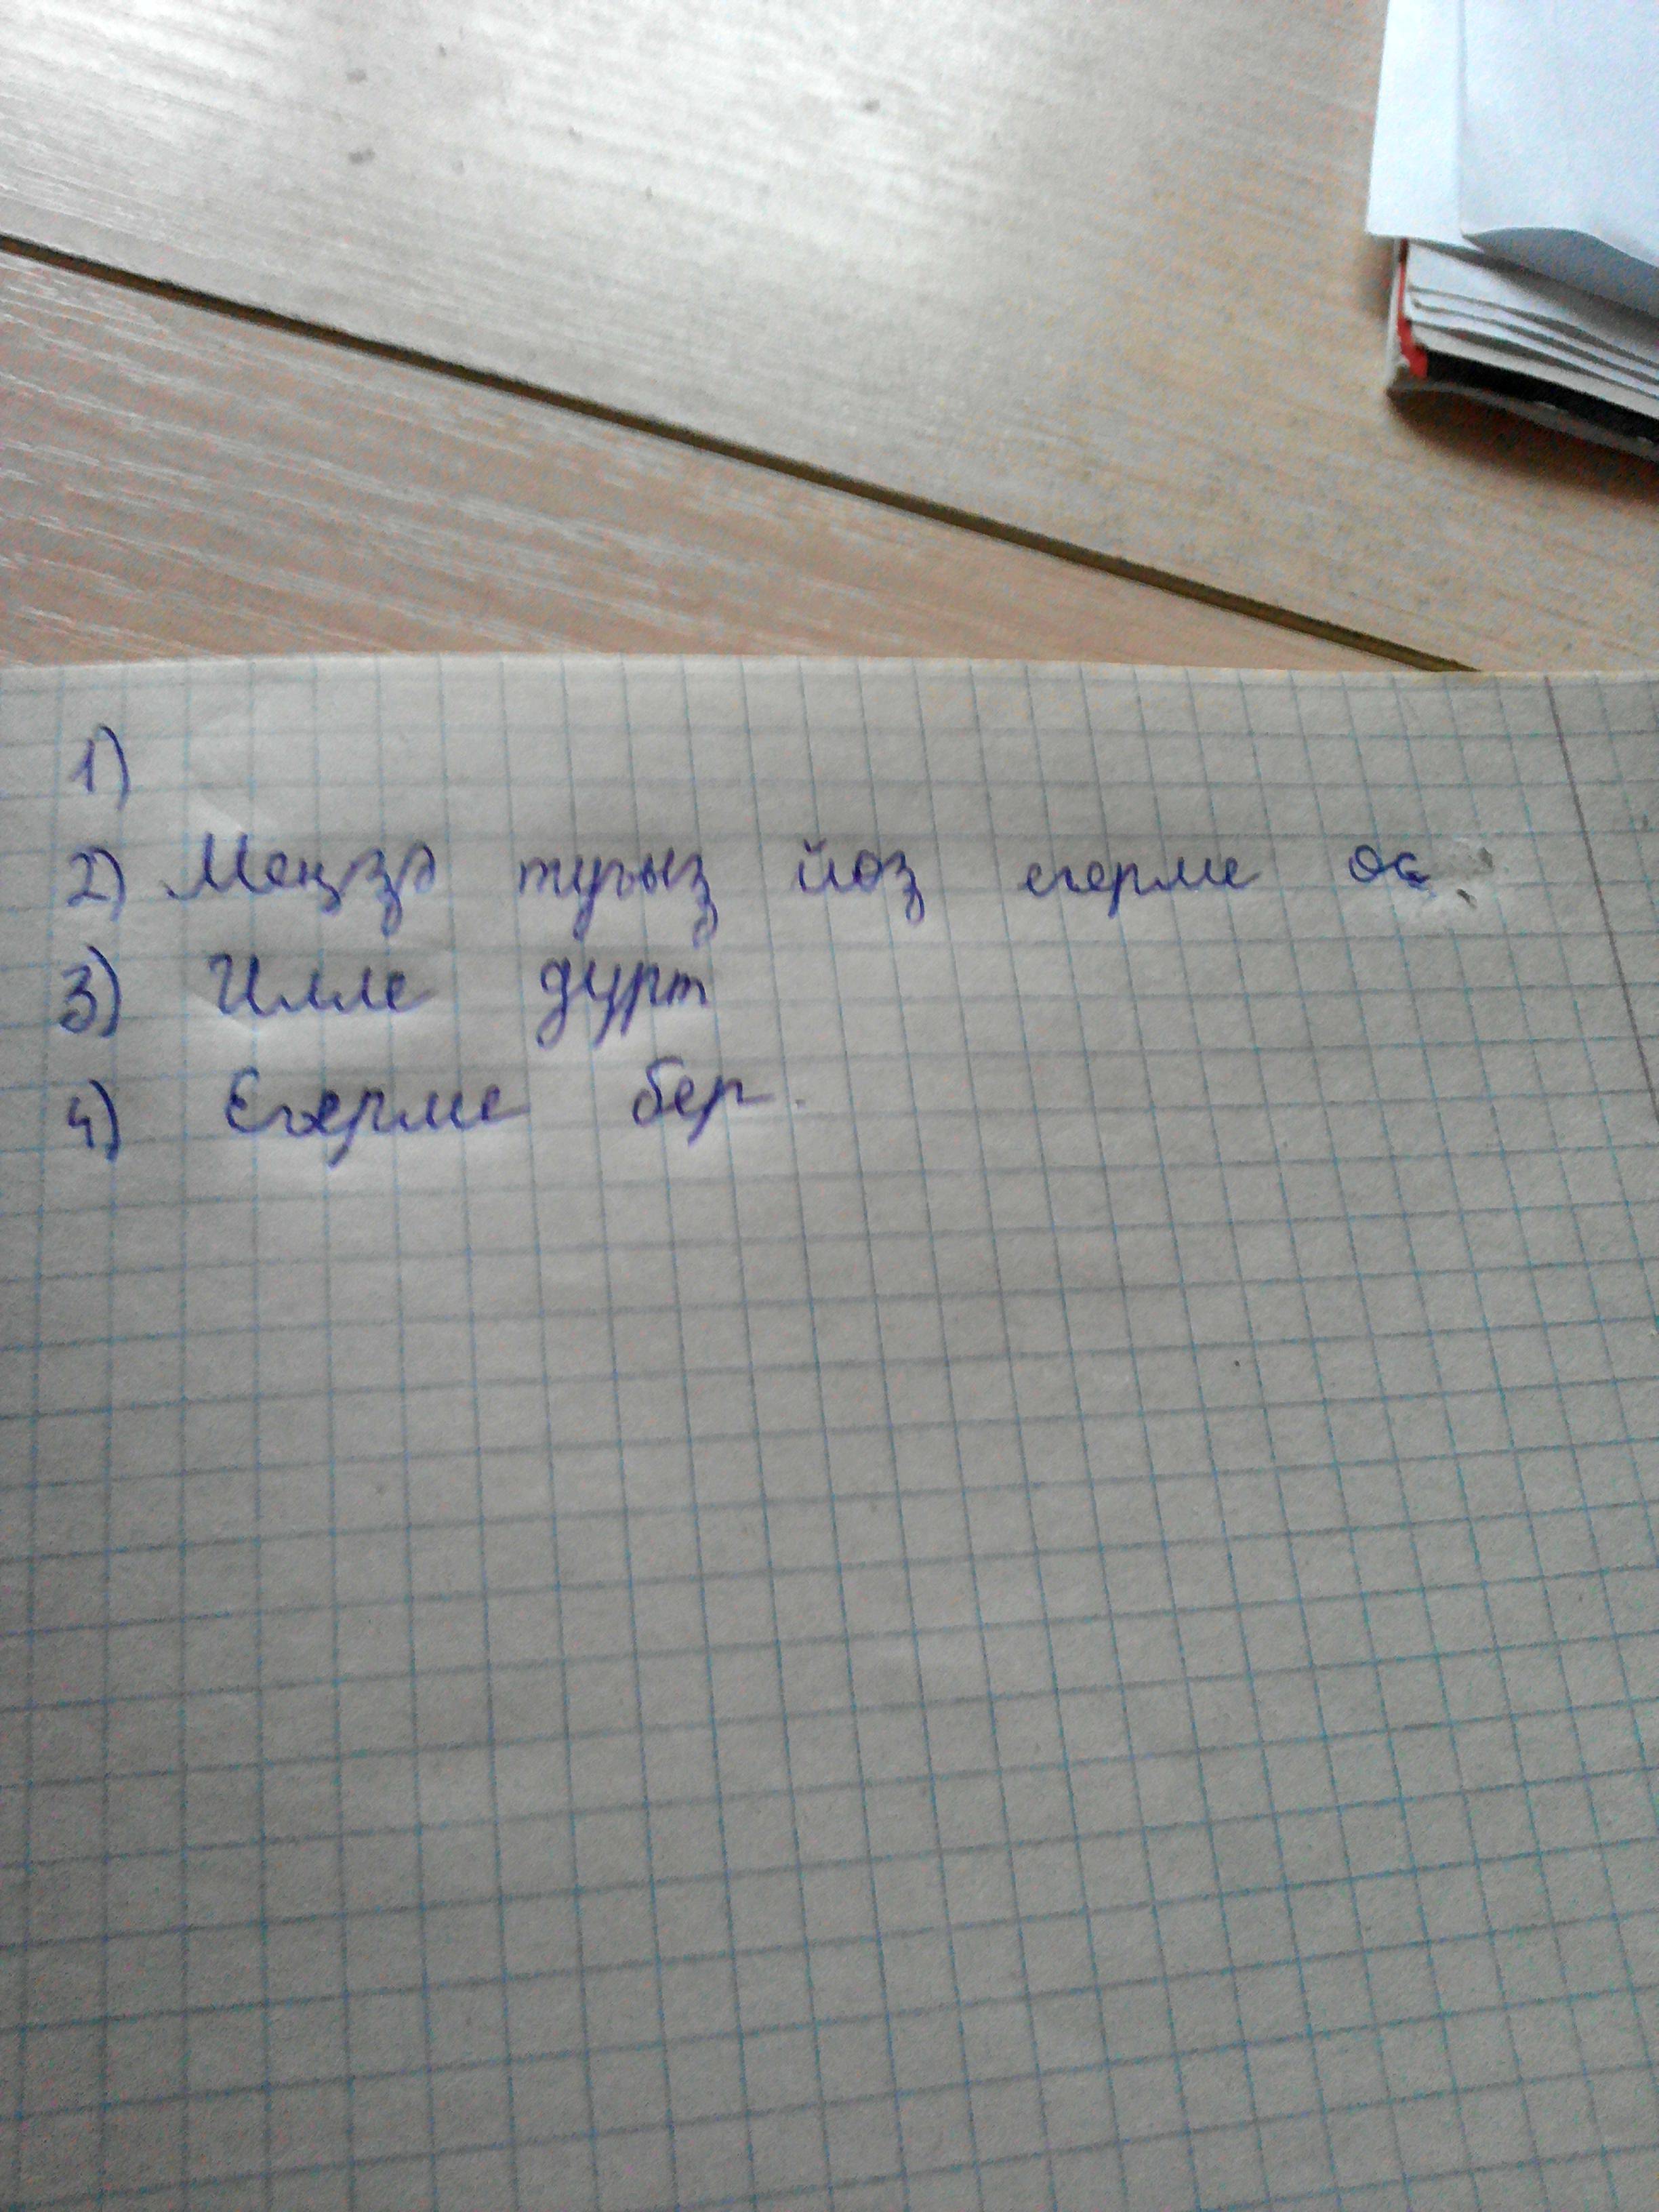 1)
2) Меңҙә туғыҙ йөҙ егерме өс
3) Илле дүрт
4) Егерме бер.